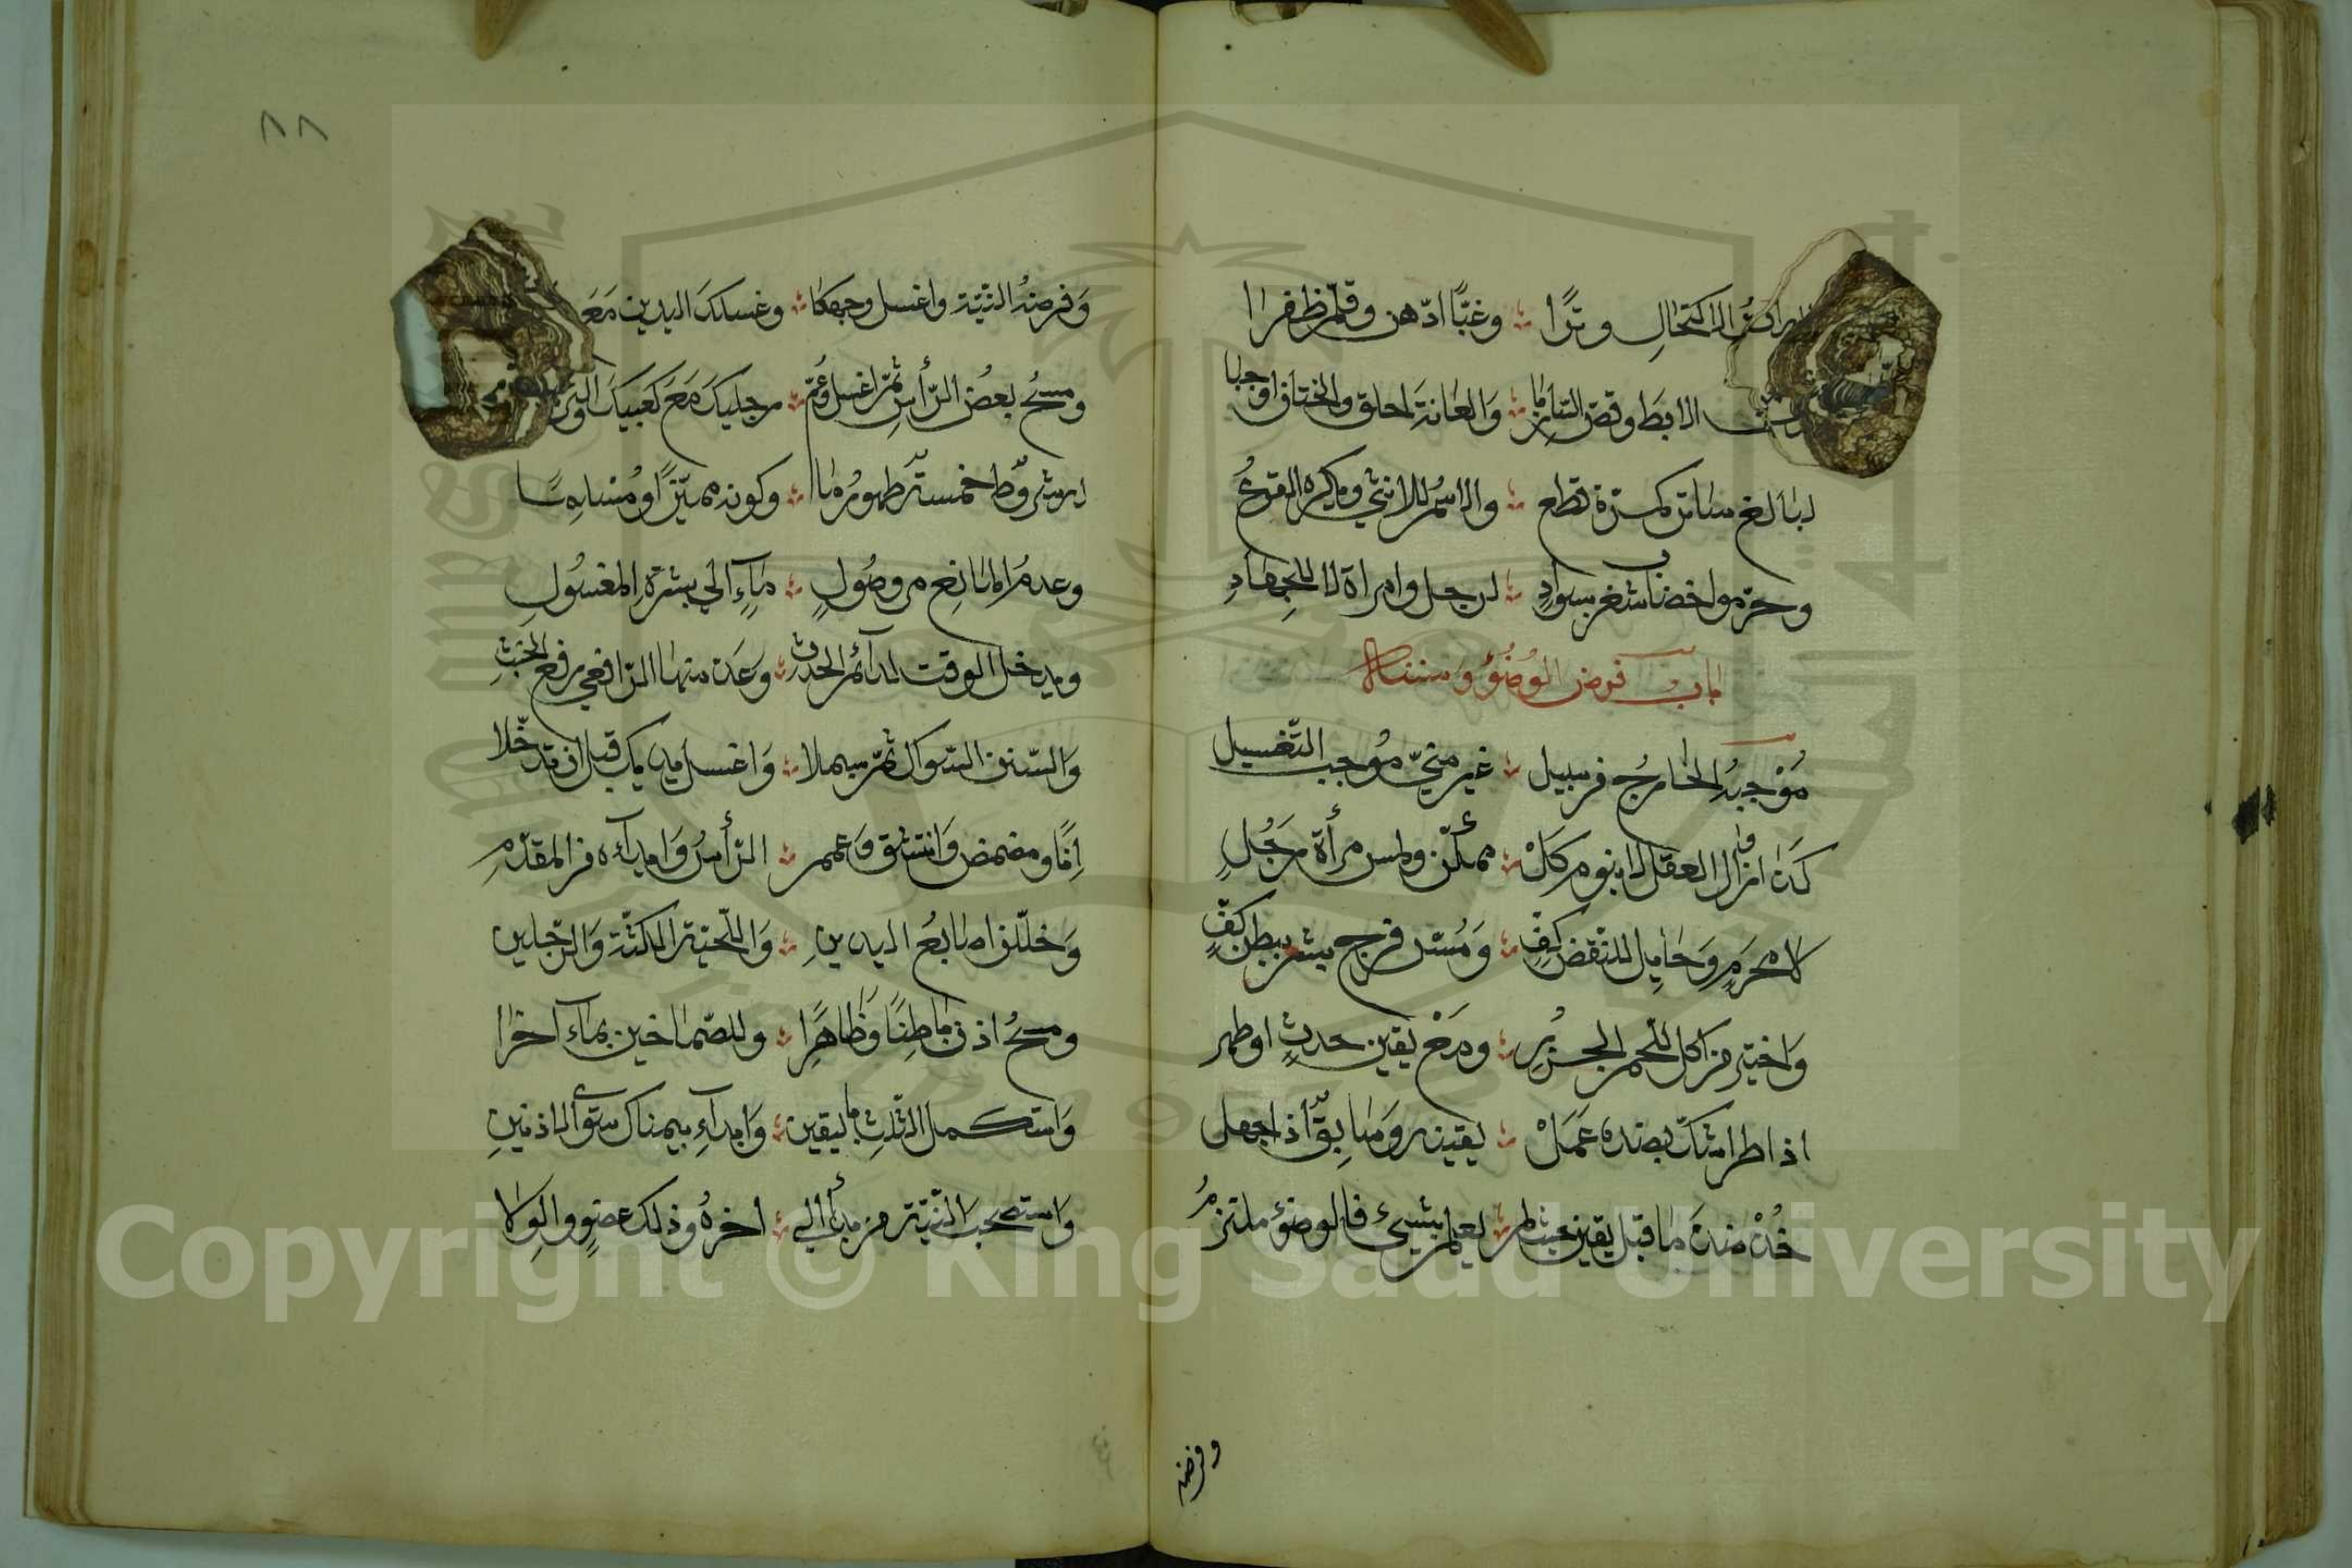 الاكتحال وترا ؞ وغبّا ادّهن وقلّم ظفرا
الابط وقصّ الشاربا ؞ والعانة احلق والختان اوجبا
لبالغ ساتر كمرة قطع ؞ والاسم للانثي ويكره القزع
وحرّموا خضاب شعر بسواد ؞ لرجل وامراة لا للجهاد
باب فروض الوضؤ وسننه
موجبه الخارج من سبيل ؞ غير منيّ موجب التغسيل
كذا زوال العقل لا بنوم كل ؞ ممكّن ولمس مرأة رجل
لا محرم وحايل للنقض كف ؞ ومس فرج بشر ببطن كف
واختير من اكل للحم الجزر ؞ ومع يقين حدث او طهر
اذا طرا شكّ بضده عمل ؞ يقينه وسابق اذا جهل
خذ ضد ما قبل يقين حيث لم ؞ يعلم بشيئ فالوضؤ ملتزم
وفرضه
٨٨
وفرضه النيّة واغسل وجهكا ؞ وغسلك اليدين مع
ومسح بعض الرأس ثمّ اغسل وعمّ ؞ رجليك مع كعبيك
شروط خمسة طهور ما ؞ وكونه مميّزا ومسلما
وعدم المانع من وصول ؞ ماء الي بشرة المغسول
ويدخل الوقت لدائم الحدث ؞ وعد منها الرافعي رفع الخبث
والسنن السواك ثمّ بسملا ؞ واغسل يديك قبل ان تدخلا
انا ومضمض وانتشق وعمم ؞ الرأس وابدأه من المقدّم
وخللن اصابع اليدين ؞ واللّحية الكثّة والرّجلين
ومسح اذن باطنا وظاهرا ؞ وللصّماخين بماء اخرا
واستكمل الثّلث باليقين ؞ وابدأ بيمناك سوى الاذنين
واستحب النيّة من بدأ الي ؞ اخره وذلك عضو والولا
Copyright © King Saud University